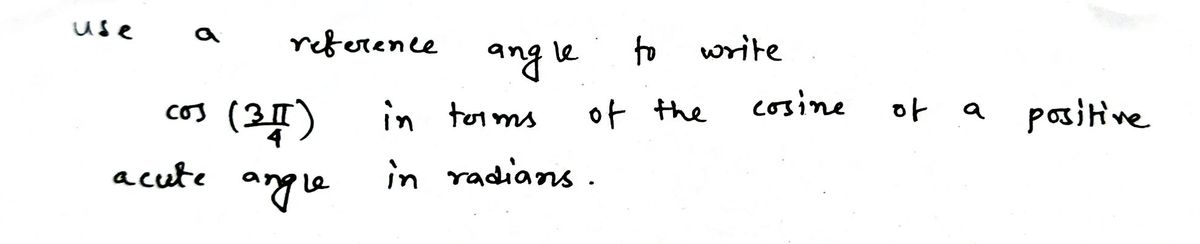 use a reference angle to write
cos (3π/4) in terms of the cosine of a positive
acute angle in radians.